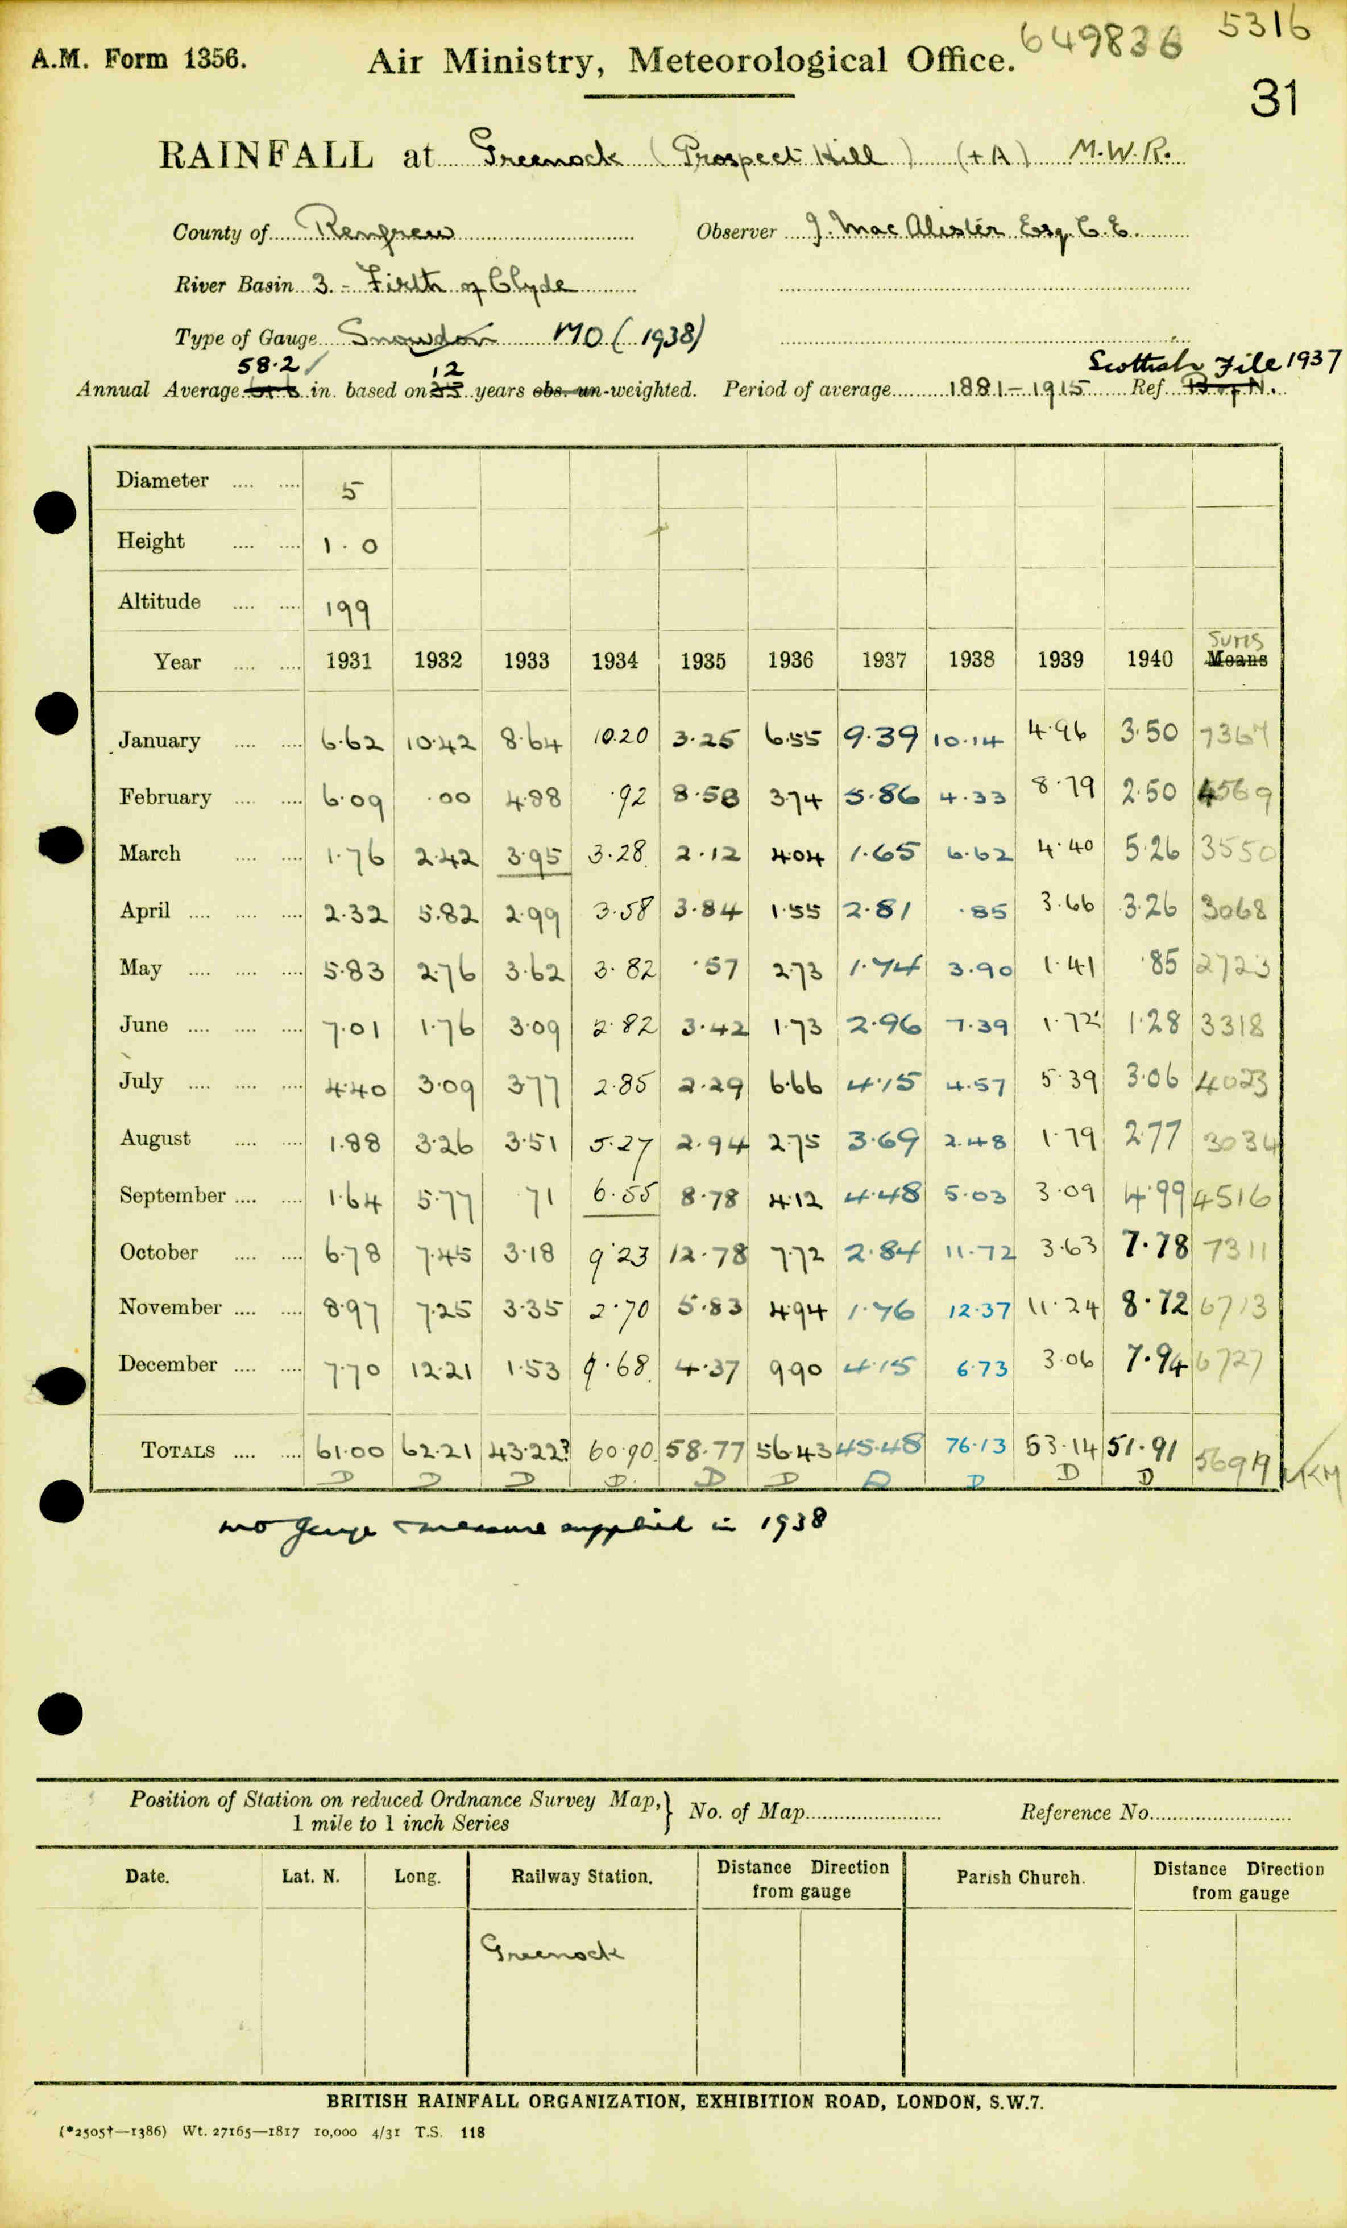 649836 5316
A.M. Form 1356. Air Ministry, Meteorological Office.
31
RAINFALL at Greenock (Prospect Hill) (+A) M.W.R.
County of Renfrew Observer J. MacAlister Esq. C.E.
River Basin 3. - Firth of Clyde
Type of Gauge Snowdon MO (1938)
58.2 12 Scottish File 1937
Annual Average in. based on 35 years obs. un-weighted. Period of average 1881-1915 Ref. B of N.
Diameter 5
Height 1.0
Altitude 199
Sums
Year 1931 1932 1933 1934 1935 1936 1937 1938 1939 1940 Means
January 6.62 10.42 8.64 10.20 3.25 6.55 9.39 10.14 4.96 3.50 7367
February 6.09 .00 4.88 .92 8.58 3.74 5.86 4.33 8.79 2.50 4569
March 1.76 2.42 3.95 3.28 2.12 4.04 1.65 6.62 4.40 5.26 3550
April 2.32 5.82 2.99 3.58 3.84 1.55 2.81 .85 3.66 3.26 3068
May 5.83 2.76 3.62 3.82 .57 2.73 1.74 3.90 1.41 .85 2723
June 7.01 1.76 3.09 2.82 3.42 1.73 2.96 7.39 1.72 1.28 3318
July 4.40 3.09 3.77 2.85 2.29 6.66 4.15 4.57 5.39 3.06 4023
August 1.88 3.26 3.51 5.27 2.94 2.75 3.69 2.48 1.79 2.77 3034
September 1.64 5.77 71 6.55 8.78 4.12 4.48 5.03 3.09 4.99 4516
October 6.78 7.45 3.18 9.23 12.78 7.72 2.84 11.72 3.63 7.78 7311
November 8.97 7.25 3.35 2.70 5.83 4.94 1.76 12.37 11.24 8.72 6713
December 7.70 12.21 1.53 9.68 4.37 9.90 4.15 6.73 3.06 7.94 6727
TOTALS 61.00 62.21 43.22? 60.90 58.77 56.43 45.48 76.13 53.14 51.91 56919
D D D D. D D D D D D
MO gauge & measure supplied in 1938
Position of Station on reduced Ordnance Survey Map, } No. of Map Reference No.
1 mile to 1 inch Series
Date. Lat. N. Long. Railway Station. Distance Direction from gauge Parish Church. Distance Direction from gauge
Greenock
BRITISH RAINFALL ORGANIZATION, EXHIBITION ROAD, LONDON, S.W.7.
(*2505†—1386) Wt. 27165—1817 10,000 4/31 T.S. 118